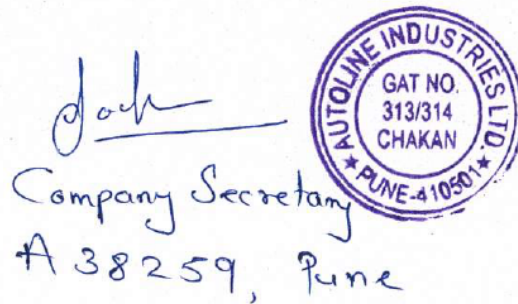 AUTOLINE INDUSTRIES LTD.
GAT NO.
313/314
CHAKAN
★ PUNE-410501 ★
Company Secretary
A 38259, Pune